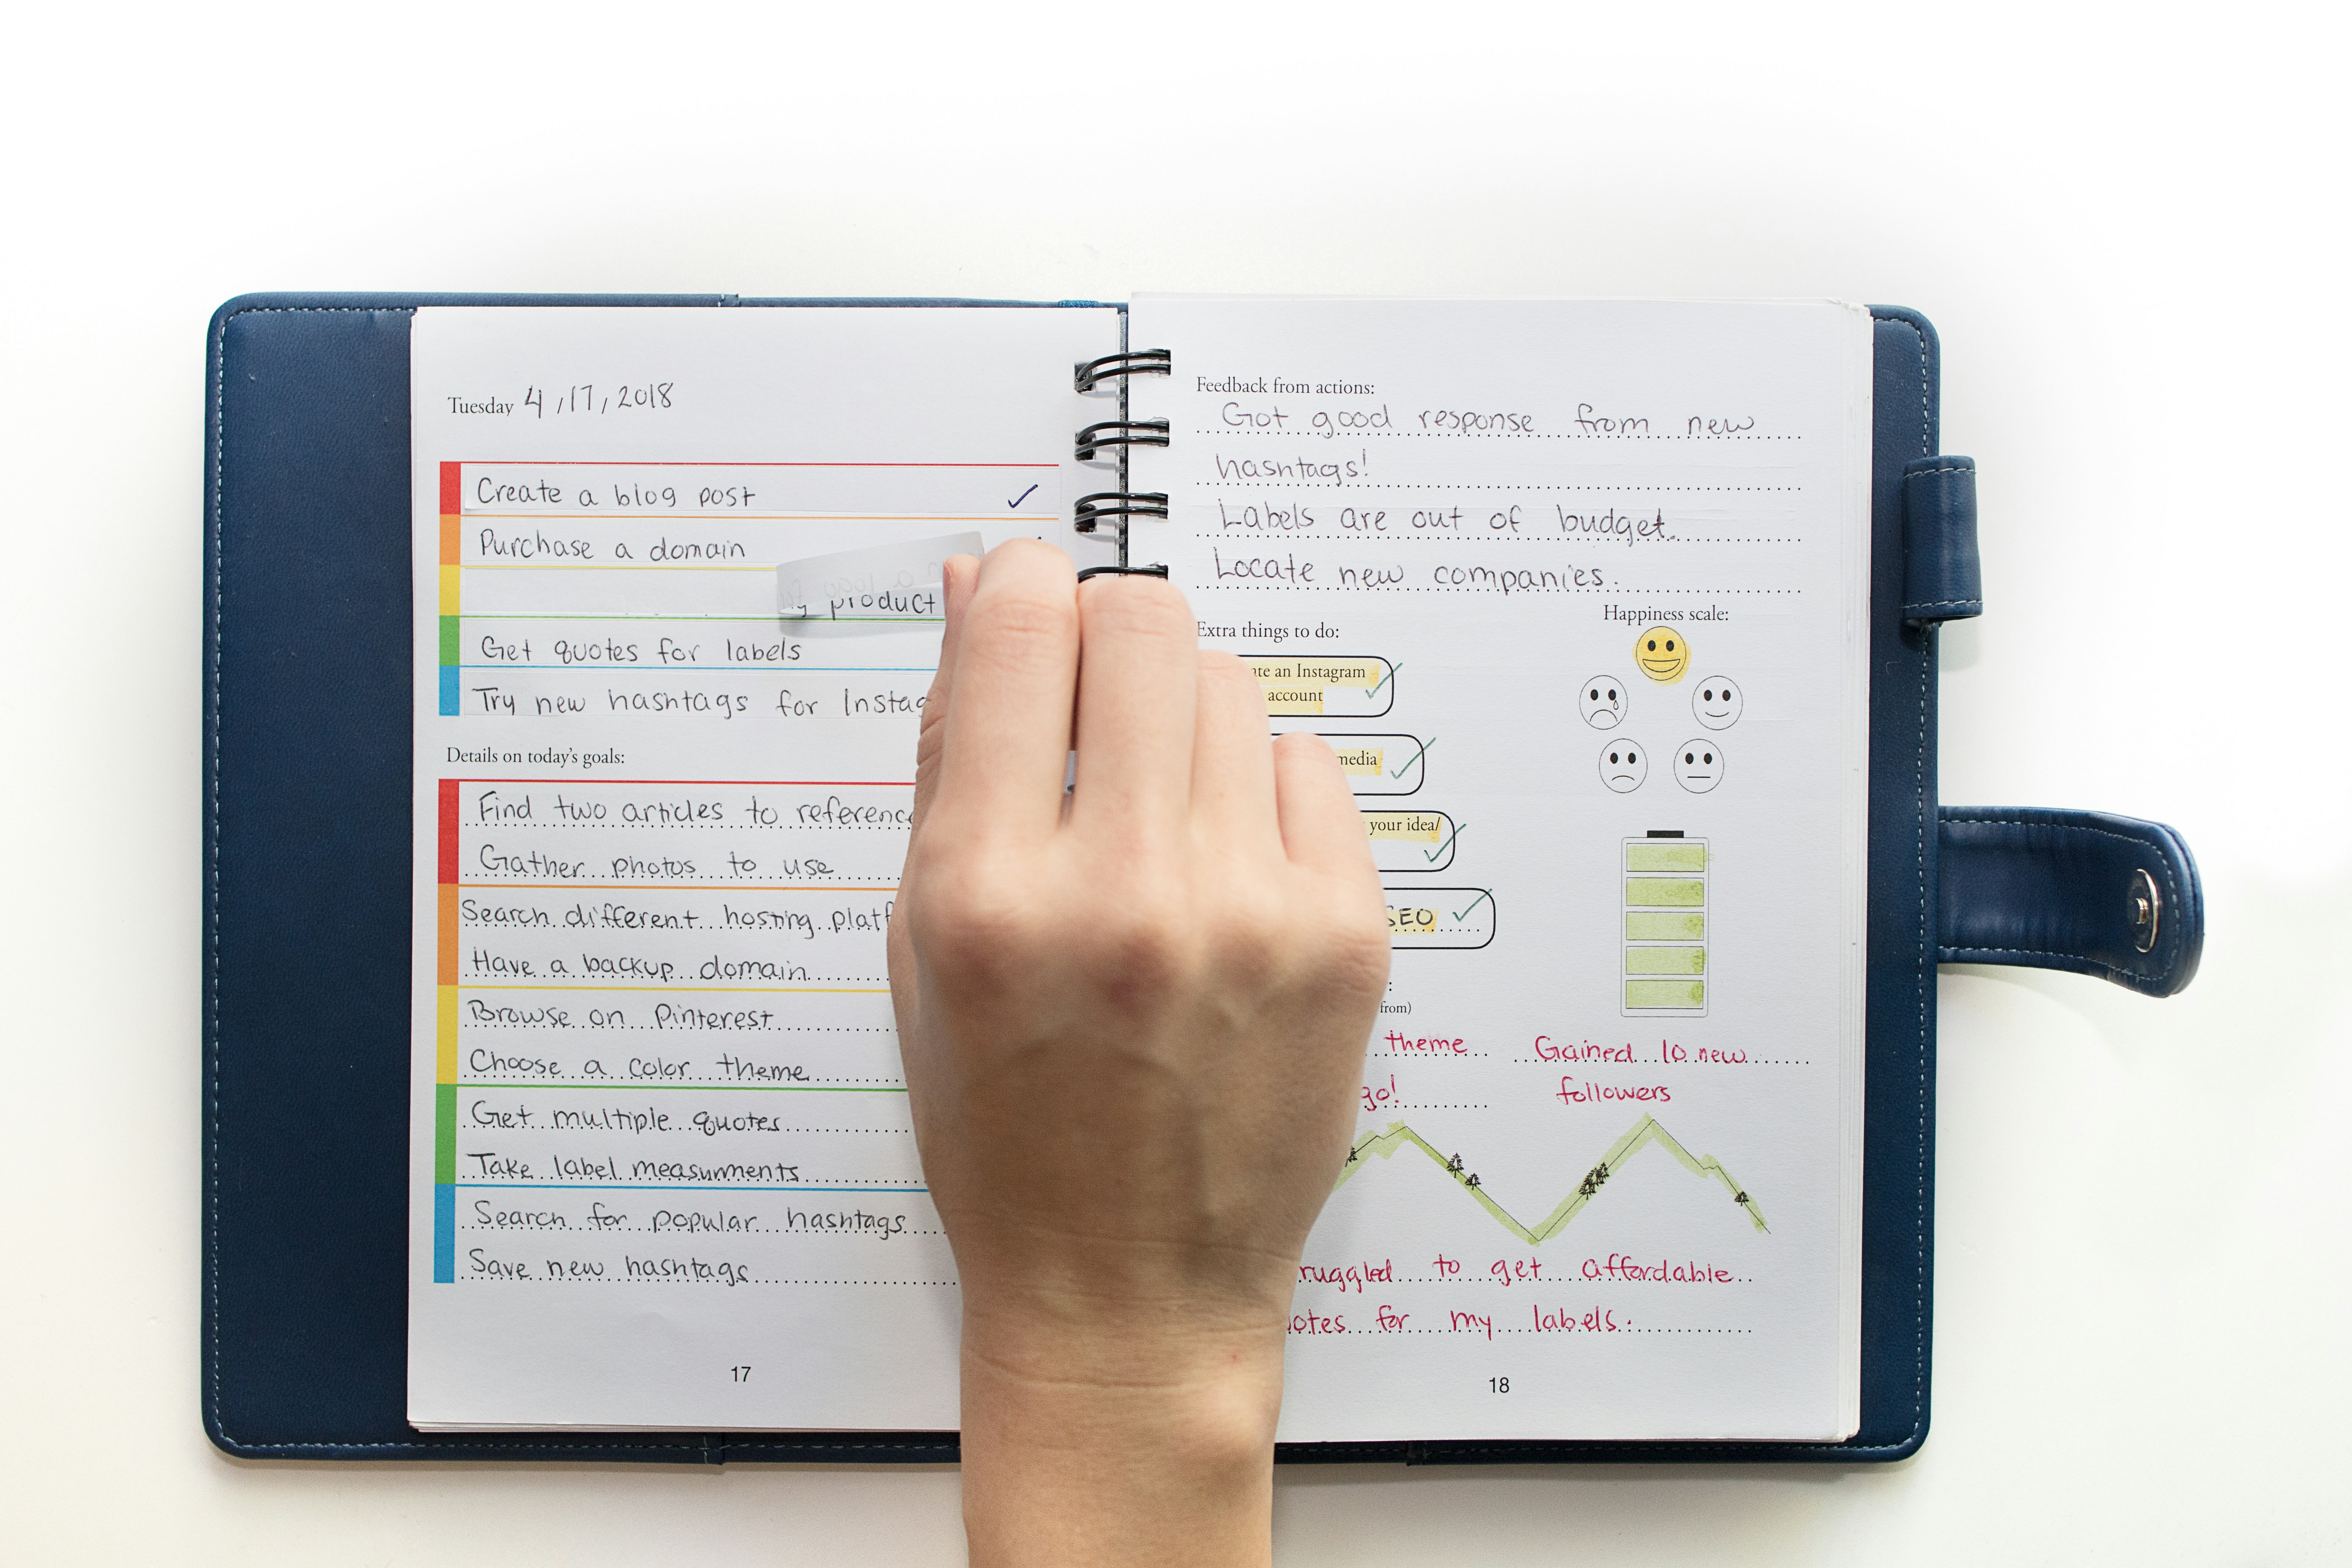 Tuesday 4/17/2018
Create a blog post
Purchase a domain
product
Get quotes for labels
Try new hashtags for
Details on today's goals:
Find two articles to
Gather photos to use
Search different hosting
Have a backup domain
Browse on Pinterest
Choose a color theme
Get multiple quotes
Take label measurments
Search for popular hashtags
Save new hashtags
17
Feedback from actions:
Got good response from new
hashtags!
Labels are out of budget.
Locate new companies.
Extra things to do:
an Instagram
account
media
your idea/
SEO
Happiness scale:
from)
theme
Gained 10 new
followers
to get affordable
for my labels.
18